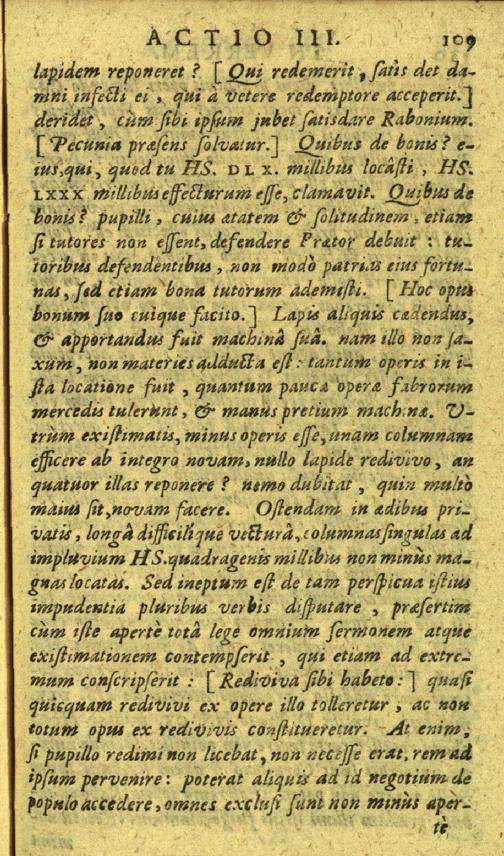 ACTIO III. 109
lapidem reponeret? [Qui redemerit, satis det da-
mni infecti ei, qui à vetere redemptore acceperit.]
deridet, cùm sibi ipsum jubet satisdare Rabonium.
[Pecunia præsens solvatur.] Quibus de bonis? e-
ius, qui, quod tu HS. DLX. millibus locâsti, HS.
LXXX millibus effecturum esse, clamavit. Quibus de
bonis? pupilli, cuius ætatem & solitudinem, etiam
si tutores non essent, defendere Prætor debuit: tu-
toribus defendentibus, non modò patrias eius fortu-
nas, sed etiam bona tutorum ademisti. [Hoc opus
bonum suo cuique facito.] Lapis aliquis cædendus,
& apportandus fuit machinâ suâ. nam illo non sa-
xum, non materies adducta est: tantum operis in i-
sta locatione fuit, quantum paucæ operæ fabrorum
mercedis tulerunt, & manus pretium machinæ. V-
trùm existimatis, minus operis esse, unam columnam
efficere ab integro novam, nullo lapide redivivo, an
quatuor illas reponere? nemo dubitat, quin multò
maius sit, novam facere. Ostendam in ædibus pri-
vatis, longâ difficilique vecturâ, columnas singulas ad
impluvium HS. quadragenis millibus non minùs ma-
gnas locatas. Sed ineptum est de tam perspicua istius
impudentia pluribus verbis disputare, præsertim
cùm iste apertè totâ lege omnium sermonem atque
existimationem contempserit, qui etiam ad extre-
mum conscripserit: [Rediviva sibi habeto:] quasi
quicquam redivivi ex opere illo tolleretur, ac non
totum opus ex redivivis constitueretur. At enim,
si pupillo redimi non licebat, non necesse erat, rem ad
ipsum pervenire: poterat aliquis ad id negotium de
populo accedere, omnes exclusi sunt non minùs aper-
tè